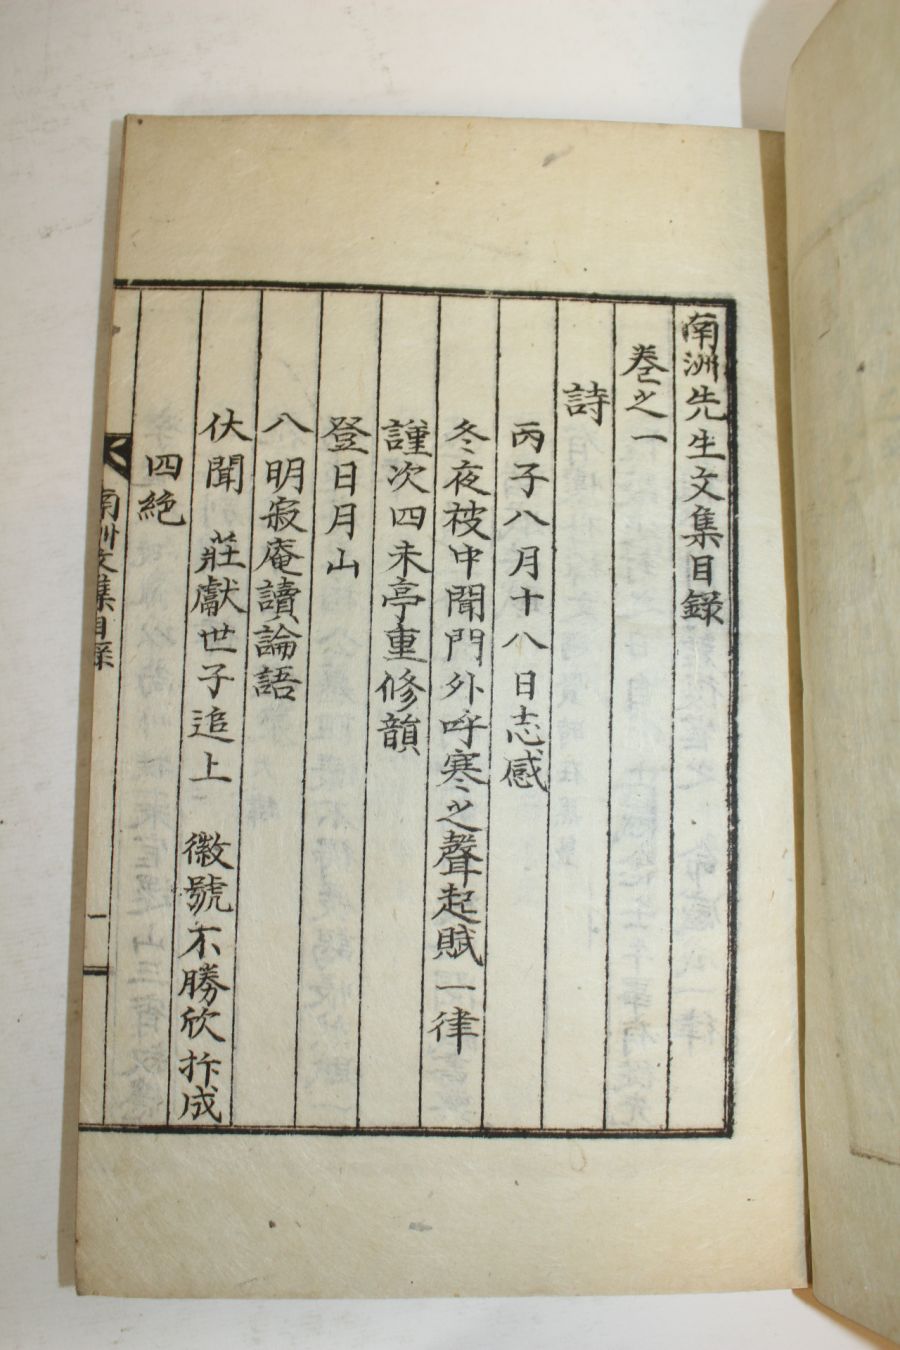 南洲先生文集目錄
卷之一
詩
丙子八月十八日志感
冬夜被中聞門外呼寒之聲起賦一律
謹次四未亭重修韻
登日月山
入明寂庵讀論語
伏聞 莊獻世子追上 徽號不勝欣抃成
四絶
南洲文集目錄 一